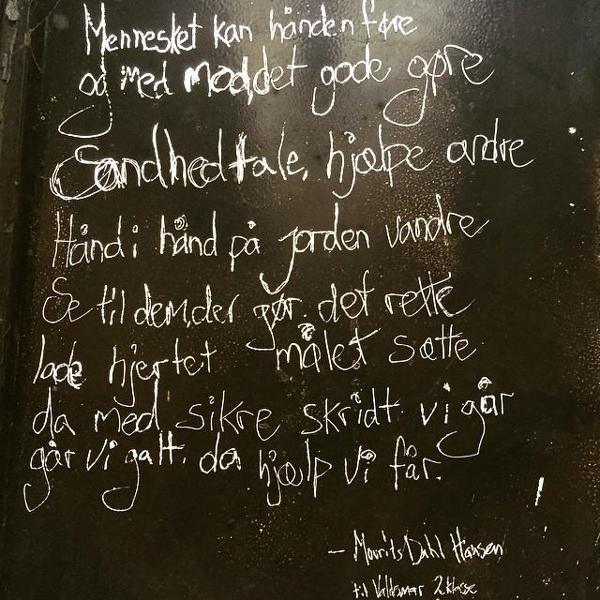 Mennesket kan hånden føre
og med mod, det gode gøre
Sandhed tale, hjælpe andre
Hånd i hånd på jorden vandre
Se til dem, der gør det rette
lade hjertet målet sætte
da med sikre skridt vi går
går vi galt, da hjælp vi får.
- Mourits Dahl Hansen
til Valdemar 2 klasse